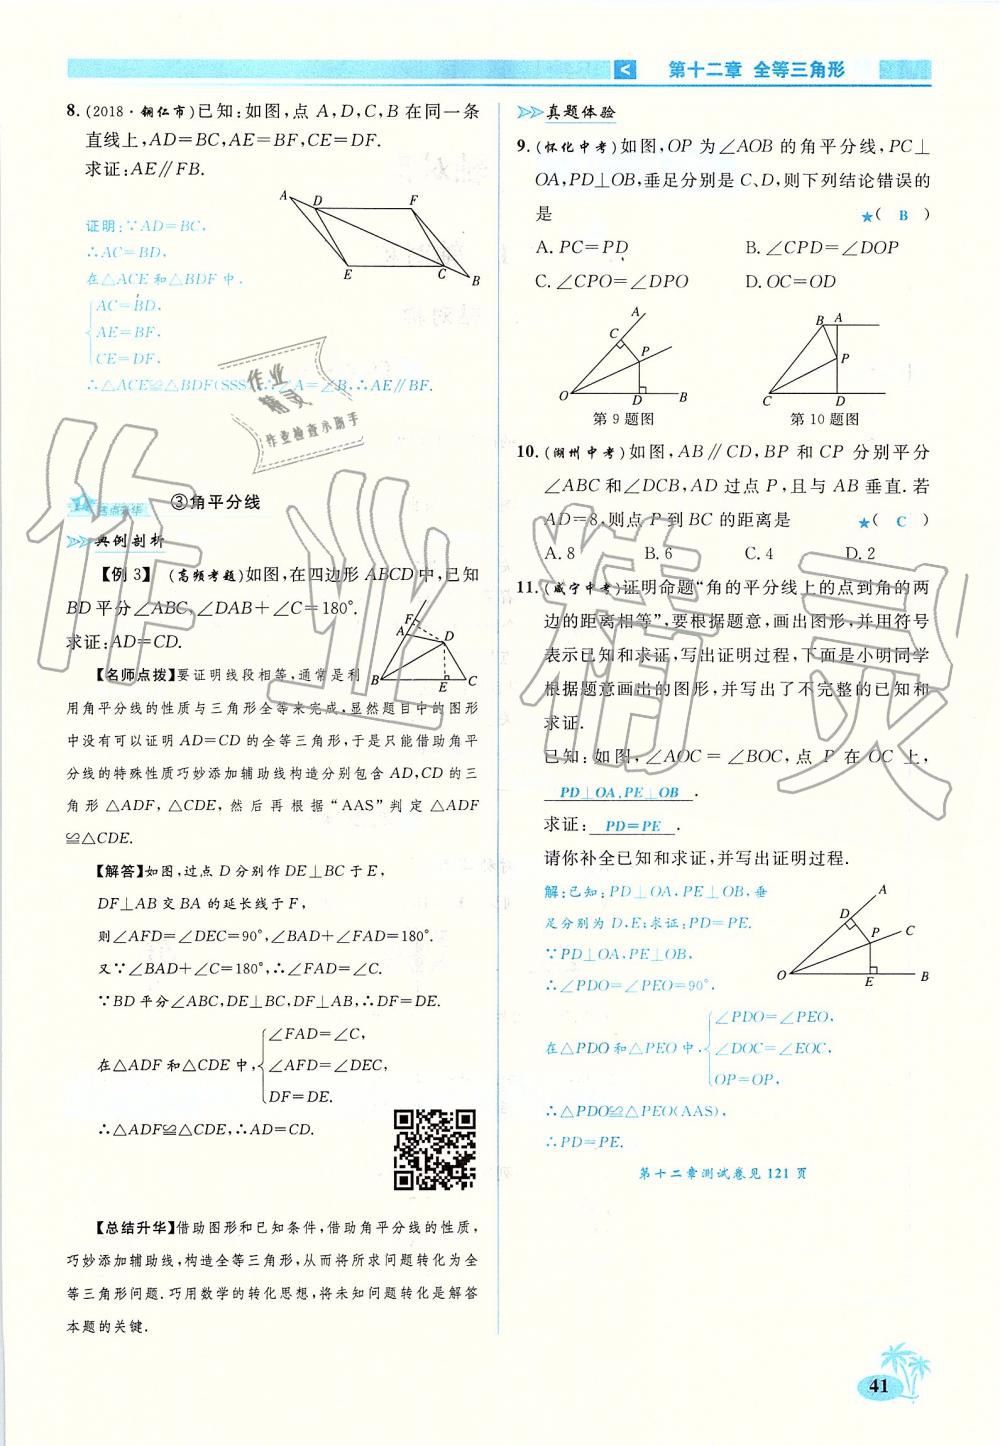 第十二章 全等三角形
8.(2018·铜仁市)已知:如图,点A,D,C,B在同一条
直线上,AD=BC,AE=BF,CE=DF.
求证:AE∥FB.
证明:∵AD=BC,
∴AC=BD,
在△ACE和△BDF中,
AC=BD,
AE=BF,
CE=DF,
∴△ACE≌△BDF(SSS),∴∠A=∠B,∴AE∥BF.
A D F E C B
作业
精灵
作业检查小助手
考点升华 ③角平分线
典例剖析
【例3】(高频考题)如图,在四边形ABCD中,已知
BD平分∠ABC,∠DAB+∠C=180°.
求证:AD=CD.
F A D B E C
【名师点拨】要证明线段相等,通常是利
用角平分线的性质与三角形全等来完成,显然题目中的图形
中没有可以证明AD=CD的全等三角形,于是只能借助角平
分线的特殊性质巧妙添加辅助线构造分别包含AD,CD的三
角形△ADF,△CDE,然后再根据“AAS”判定△ADF
≌△CDE.
【解答】如图,过点D分别作DE⊥BC于E,
DF⊥AB交BA的延长线于F,
则∠AFD=∠DEC=90°,∠BAD+∠FAD=180°.
又∵∠BAD+∠C=180°,∴∠FAD=∠C.
∵BD平分∠ABC,DE⊥BC,DF⊥AB,∴DF=DE.
∠FAD=∠C,
在△ADF和△CDE中,∠AFD=∠DEC,
DF=DE.
∴△ADF≌△CDE,∴AD=CD.
【总结升华】借助图形和已知条件,借助角平分线的性质,
巧妙添加辅助线,构造全等三角形,从而将所求问题转化为全
等三角形问题.巧用数学的转化思想,将未知问题转化是解答
本题的关键.
真题体验
9.(怀化中考)如图,OP为∠AOB的角平分线,PC⊥
OA,PD⊥OB,垂足分别是C、D,则下列结论错误的
是 ★( B )
A.PC=PD B.∠CPD=∠DOP
C.∠CPO=∠DPO D.OC=OD
A C P O D B
B A P C D
第9题图 第10题图
10.(湖州中考)如图,AB∥CD,BP和CP分别平分
∠ABC和∠DCB,AD过点P,且与AB垂直.若
AD=8,则点P到BC的距离是 ★( C )
A.8 B.6 C.4 D.2
11.(咸宁中考)证明命题“角的平分线上的点到角的两
边的距离相等”,要根据题意,画出图形,并用符号
表示已知和求证,写出证明过程,下面是小明同学
根据题意画出的图形,并写出了不完整的已知和
求证.
已知:如图,∠AOC=∠BOC,点P在OC上,
PD⊥OA,PE⊥OB.
求证:PD=PE.
请你补全已知和求证,并写出证明过程.
解:已知:PD⊥OA,PE⊥OB,垂
足分别为D、E;求证:PD=PE.
∵PD⊥OA,PE⊥OB,
∴∠PDO=∠PEO=90°,
A D P C O E B
∠PDO=∠PEO,
在△PDO和△PEO中,∠DOC=∠EOC,
OP=OP,
∴△PDO≌△PEO(AAS),
∴PD=PE.
第十二章测试卷见121页
41
作业精灵